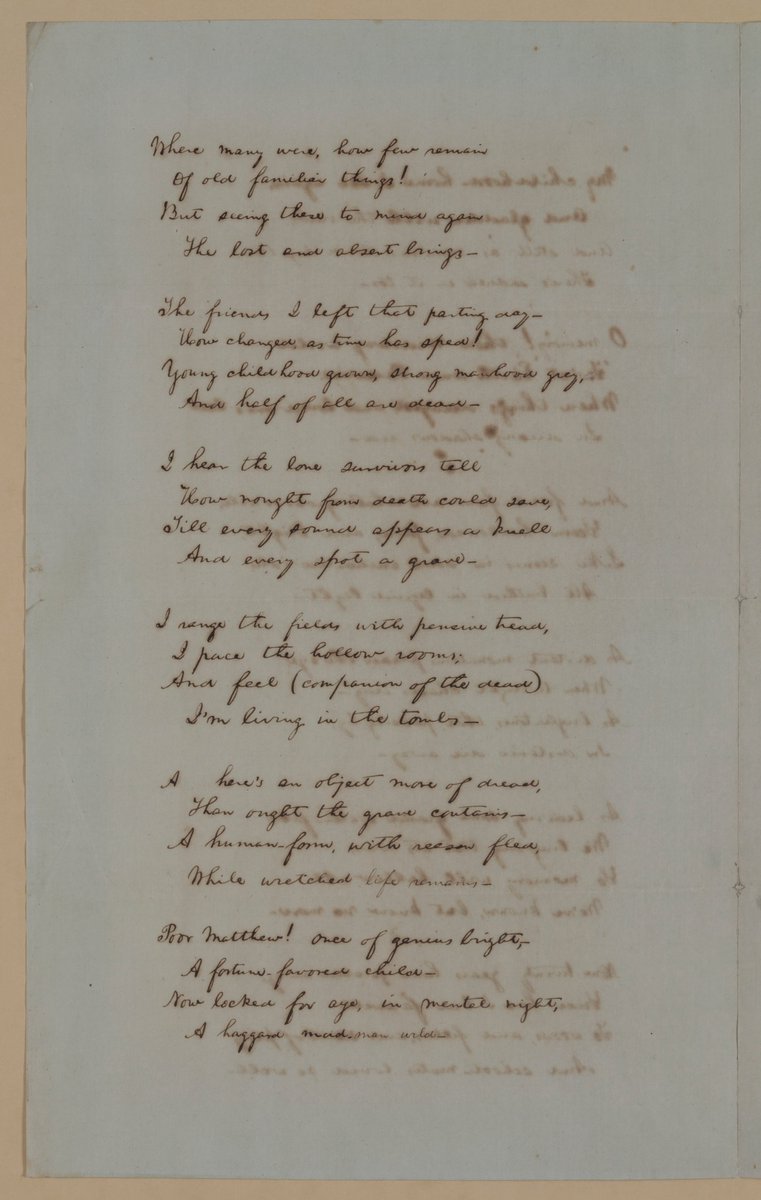 Where many were, how few remain
Of old familiar things!
But seeing these to mind again
The lost and absent brings—
The friends I left that parting day—
How changed, as time has sped!
Young childhood grown, strong manhood grey,
And half of all are dead—
I hear the lone survivors tell
How nought from death could save,
Till every sound appears a knell
And every spot a grave—
I range the fields with pensive tread,
I pace the hollow rooms;
And feel (companion of the dead)
I'm living in the tombs—
A here's an object more of dread,
Than ought the grave contains—
A human-form, with reason fled,
While wretched life remains—
Poor Matthew! once of genius bright,—
A fortune-favored child—
Now locked for aye, in mental night,
A haggard mad-man wild—